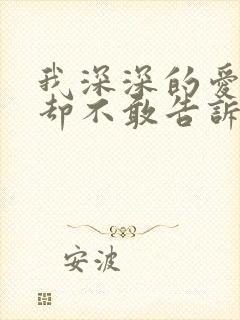 我深深的愛
却不敢告訴
安波